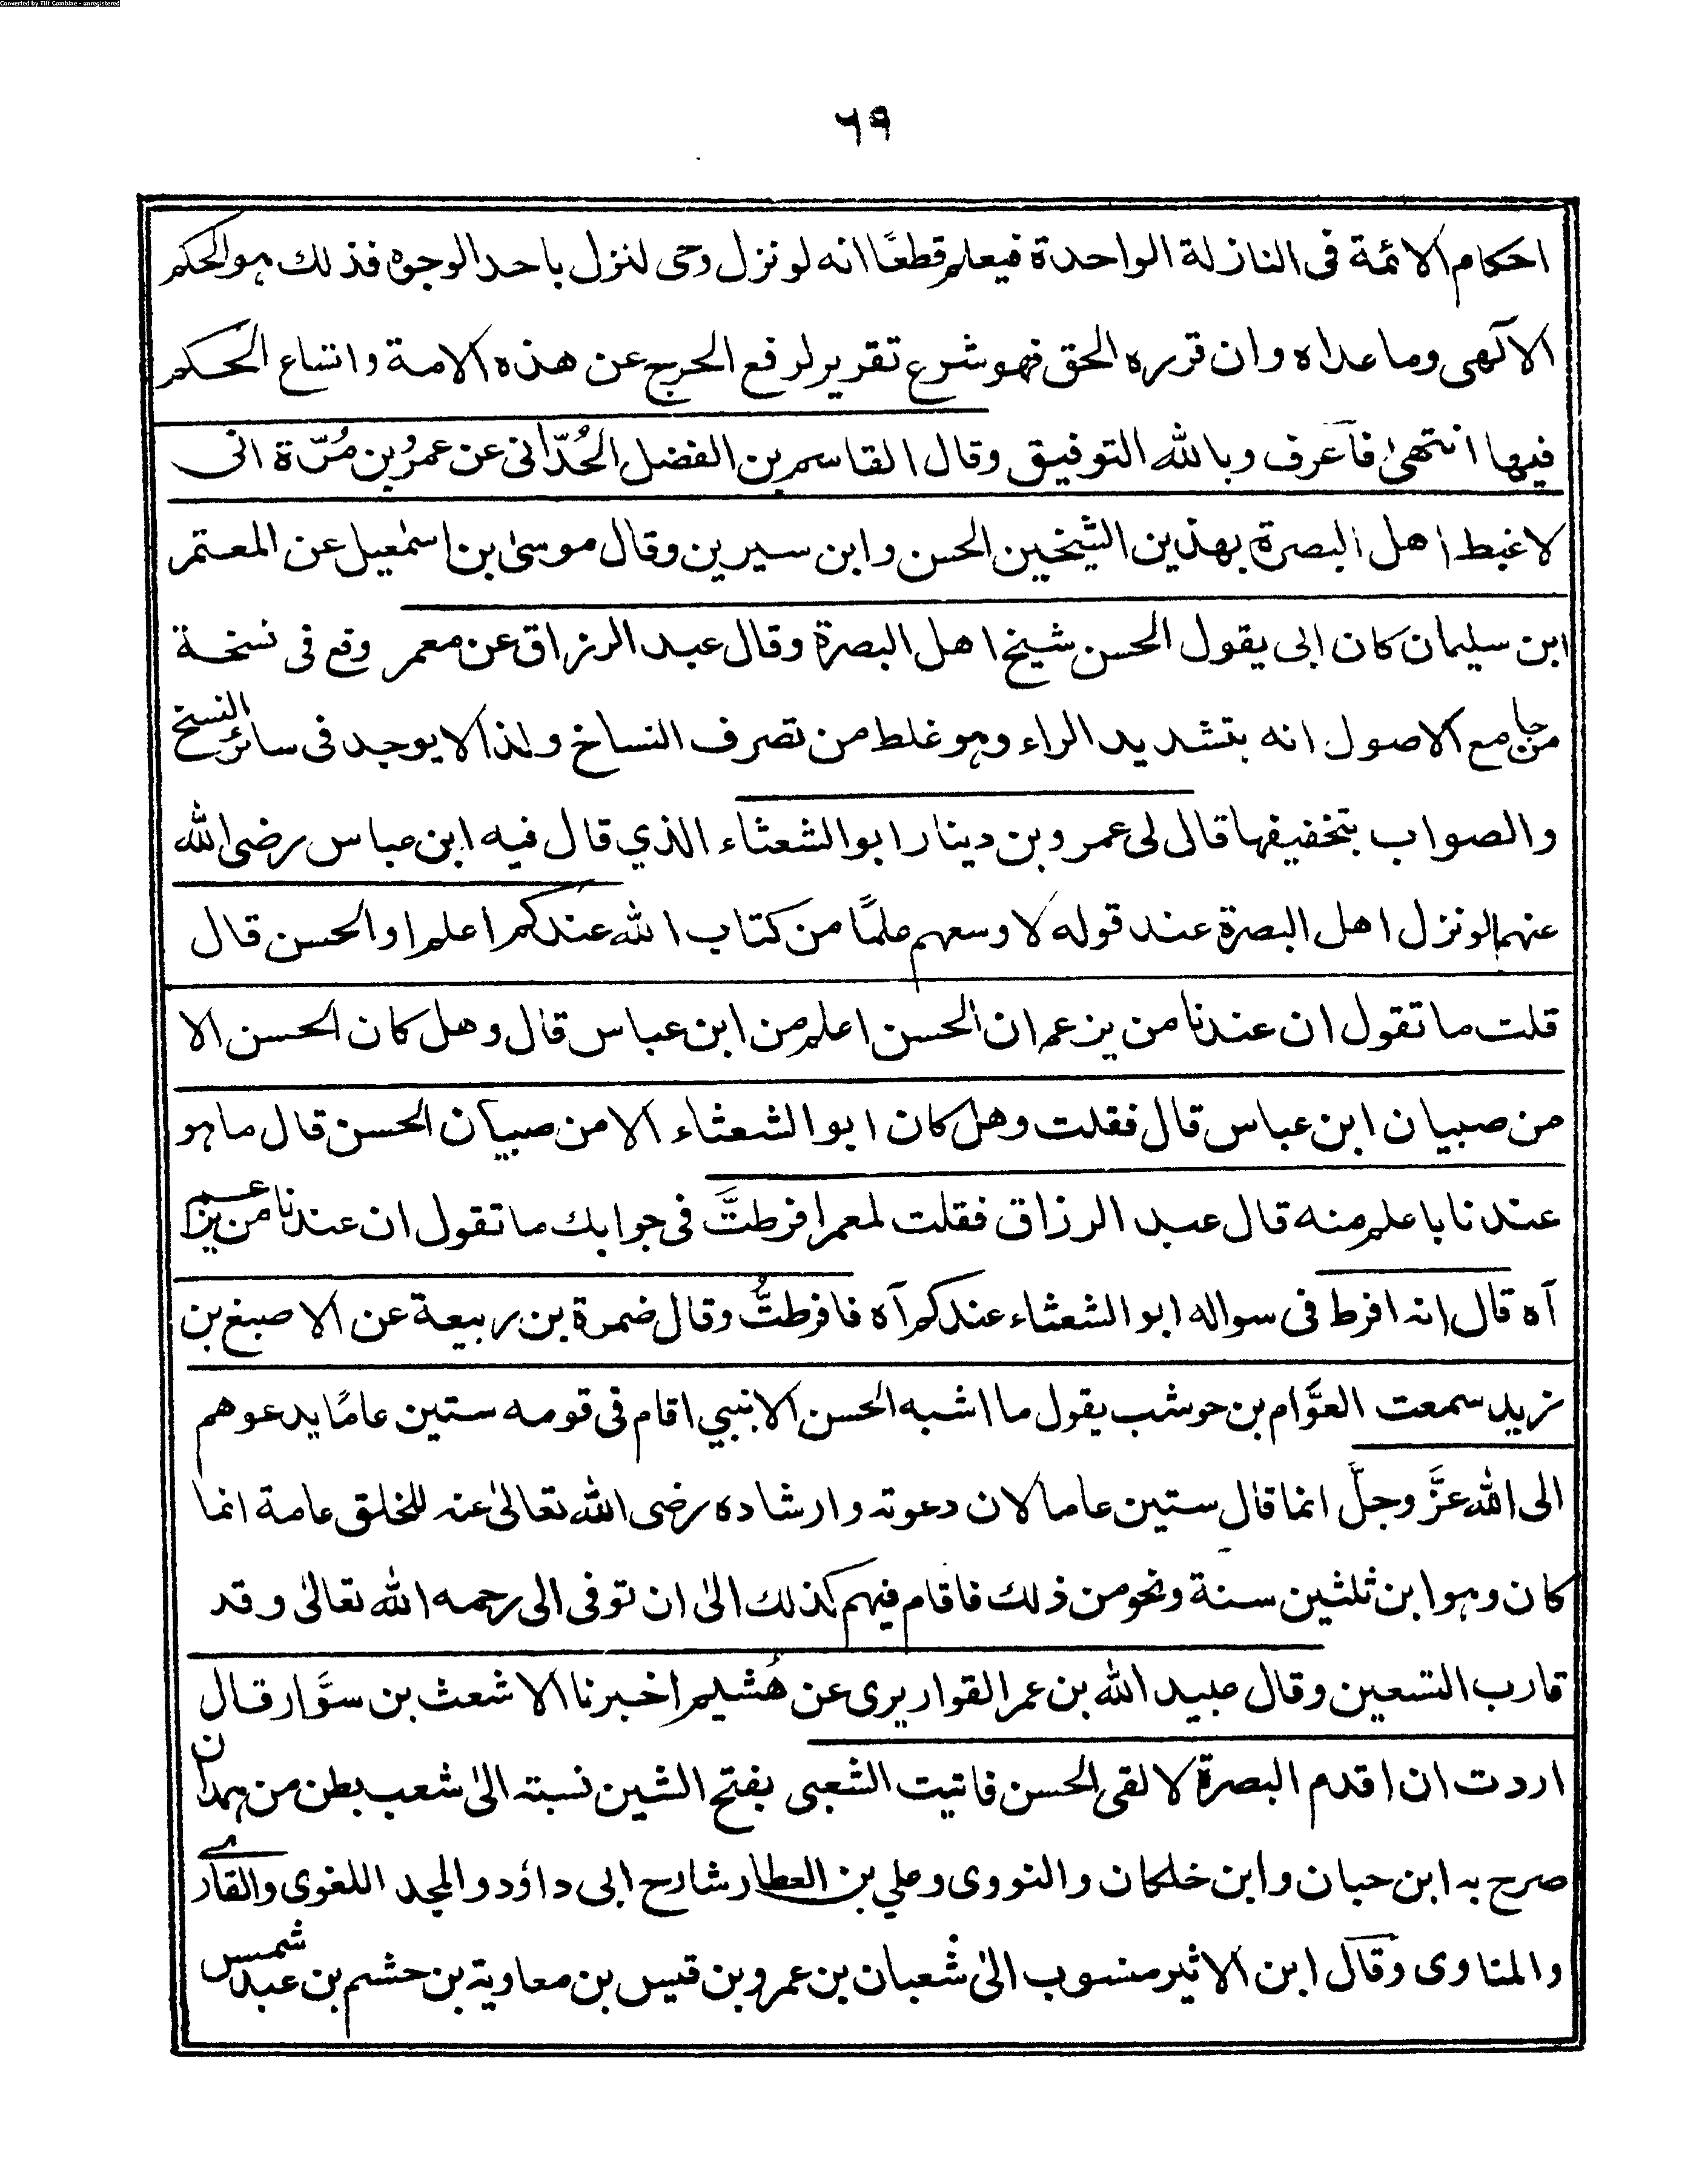 Converted by Tiff Combine - unregistered
٦٩
احكام الائمة فى النازلة الواحدة فيعلم قطعًا انه لو نزل وحى لنزل باحد الوجوه فذلك هو الحكم
الآلهى وما عداه وان قرره الحق فهو شرع تقرير لرفع الحرج عن هذه الامة واتساع الحكم
فيها انتهىٰ فآعرف وبالله التوفيق وقال القاسم بن الفضل الحُدّانى عن عمرُو بن مُرّة انى
لاغبط اهل البصرة بهذين الشيخين الحسن وابن سيرين وقال موسىٰ بن اسمٰعيل عن المعتمر
ابن سليمان كان ابى يقول الحسن شيخ اهل البصرة وقال عبد الرزاق عن معمر وقع فى نسخة
من جامع الاصول انه بتشديد الراء وهو غلط من تصرف النساخ ولذا لا يوجد فى سائر النسخ
والصواب بتخفيفها قال لى عمرو بن دينار ابو الشعثاء الذي قال فيه ابن عباس رضى الله
عنهما لو نزل اهل البصرة عند قوله لاوسعهم علمًا من كتاب الله عندكم اعلم او الحسن قال
قلت ما تقول ان عندنا من يزعم ان الحسن اعلم من ابن عباس قال وهل كان الحسن الا
من صبيان ابن عباس قال فقلت وهل كان ابو الشعثاء الا من صبيان الحسن قال ما هو
عندنا باعلم منه قال عبد الرزاق فقلت لمعمر افرطتَّ فى جوابك ما تقول ان عندنا من يزعم
آه قال انه افرط فى سواله ابو الشعثاء عندكم آه فافرطتُّ وقال ضمرة بن ربيعة عن الاصبغ بن
زيد سمعت العوَّام بن حوشب يقول ما اشبه الحسن الا بنبي اقام فى قومه ستين عامًا يدعوهم
الى الله عزَّ وجلَّ انما قال ستين عاما لان دعوته وارشاده رضى الله تعالىٰ عنه للخلق عامة انما
كان وهو ابن ثلثين سنة ونحو من ذلك فاقام فيهم كذلك الىٰ ان توفى الى رحمه الله تعالىٰ وقد
قارب التسعين وقال عبيد الله بن عمر القواريرى عن هُشيم اخبرنا الاشعث بن سوَّار قال
اردت ان اقدم البصرة لالقى الحسن فاتيت الشعبى بفتح الشين نسبته الىٰ شعب بطن من همدان
صرح به ابن حبان وابن خلكان والنووى وعلي بن العطار شارح ابى داؤد والمجد اللغوى والقارے
والمناوى وقال ابن الاثير منسوب الىٰ شعبان بن عمرو بن قيس بن معاوية بن حشم بن عبد شمس